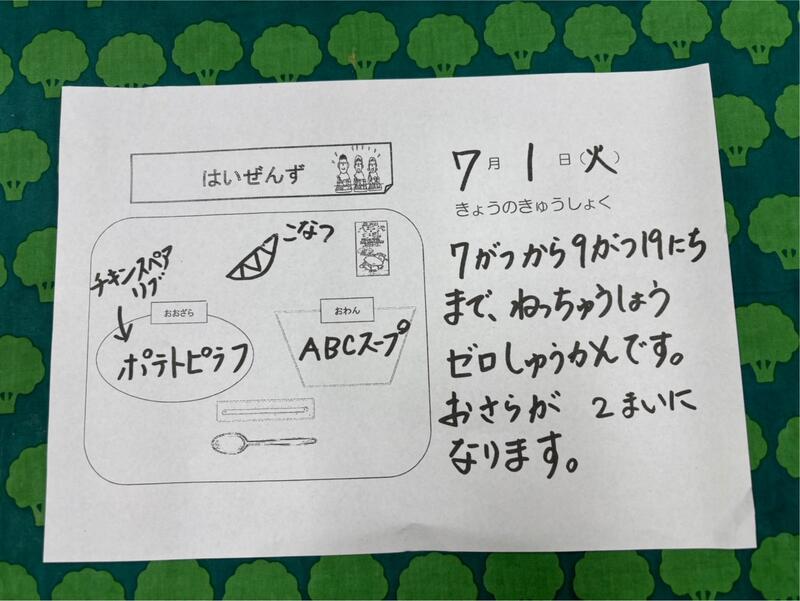 はいぜんず
こなつ
チキンスペア
リブ
おおざら
ポテトピラフ
おわん
ABCスープ
7月1日(火)
きょうのきゅうしょく
7がつから9がつ19にち
まで、ねっちゅうしょう
ゼロしゅうかんです。
おさらが 2まいに
なります。